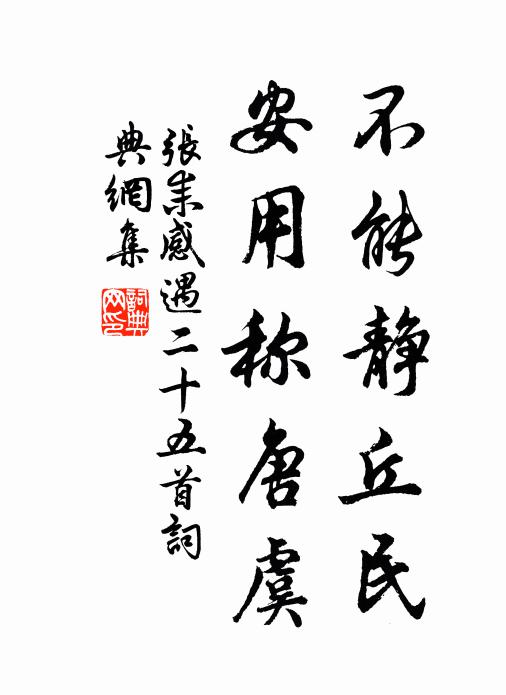 不能静丘民
安用称唐虞
張耒感遇二十五首詞
典網集
詞典
网印